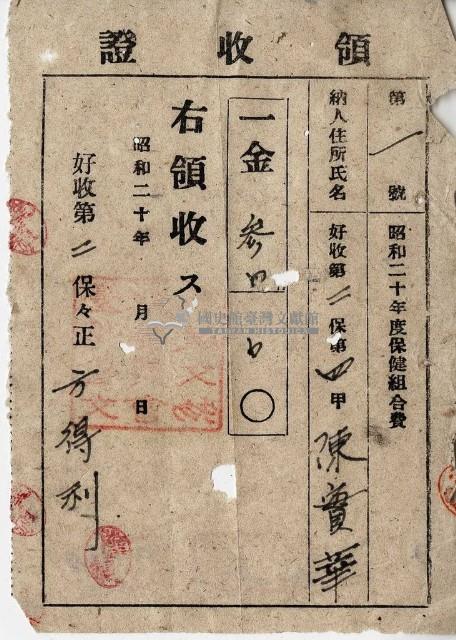 領收證
第一號 昭和二十年度保健組合費
納人住所氏名 好收第二保第四甲 陳賣華
一金 参円 〇
右領收ス
昭和二十年 月 日
好收第二保々正 方得利
國史館臺灣文獻館
TAIWAN HISTORICA